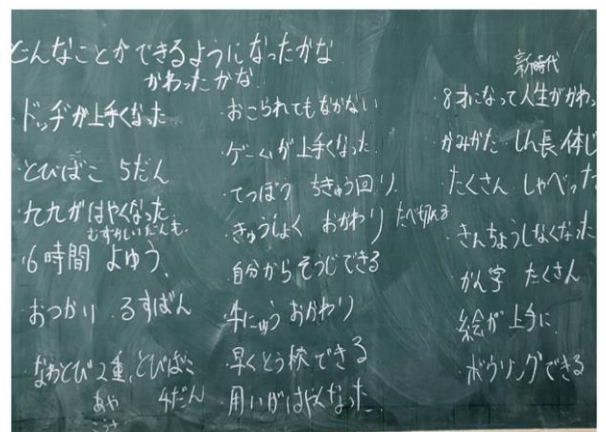 どんなことができるようになったかな
かわったかな
・ドッヂが上手くなった
・とびばこ 5だん
・九九がはやくなった
むずかしいだんも
・6時間 よゆう、
・おつかい るすばん
・なわとび2重、とびばこ
あや 4だん
・おこられてもなかない
・ゲームが上手くなった
・てっぽう ちきゅう回り
・きゅうしょく おかわり たべ切れる
・自分からそうじできる
・牛にゅう おかわり
・早くとう校できる
・用いがはやくなった
新時代
・8才になって人生がかわっ
・かみがた しん長 体じ
・たくさん しゃべった
・きんちょうしなくなった
・かん字 たくさん
・絵が上手に
・ボウリングできる